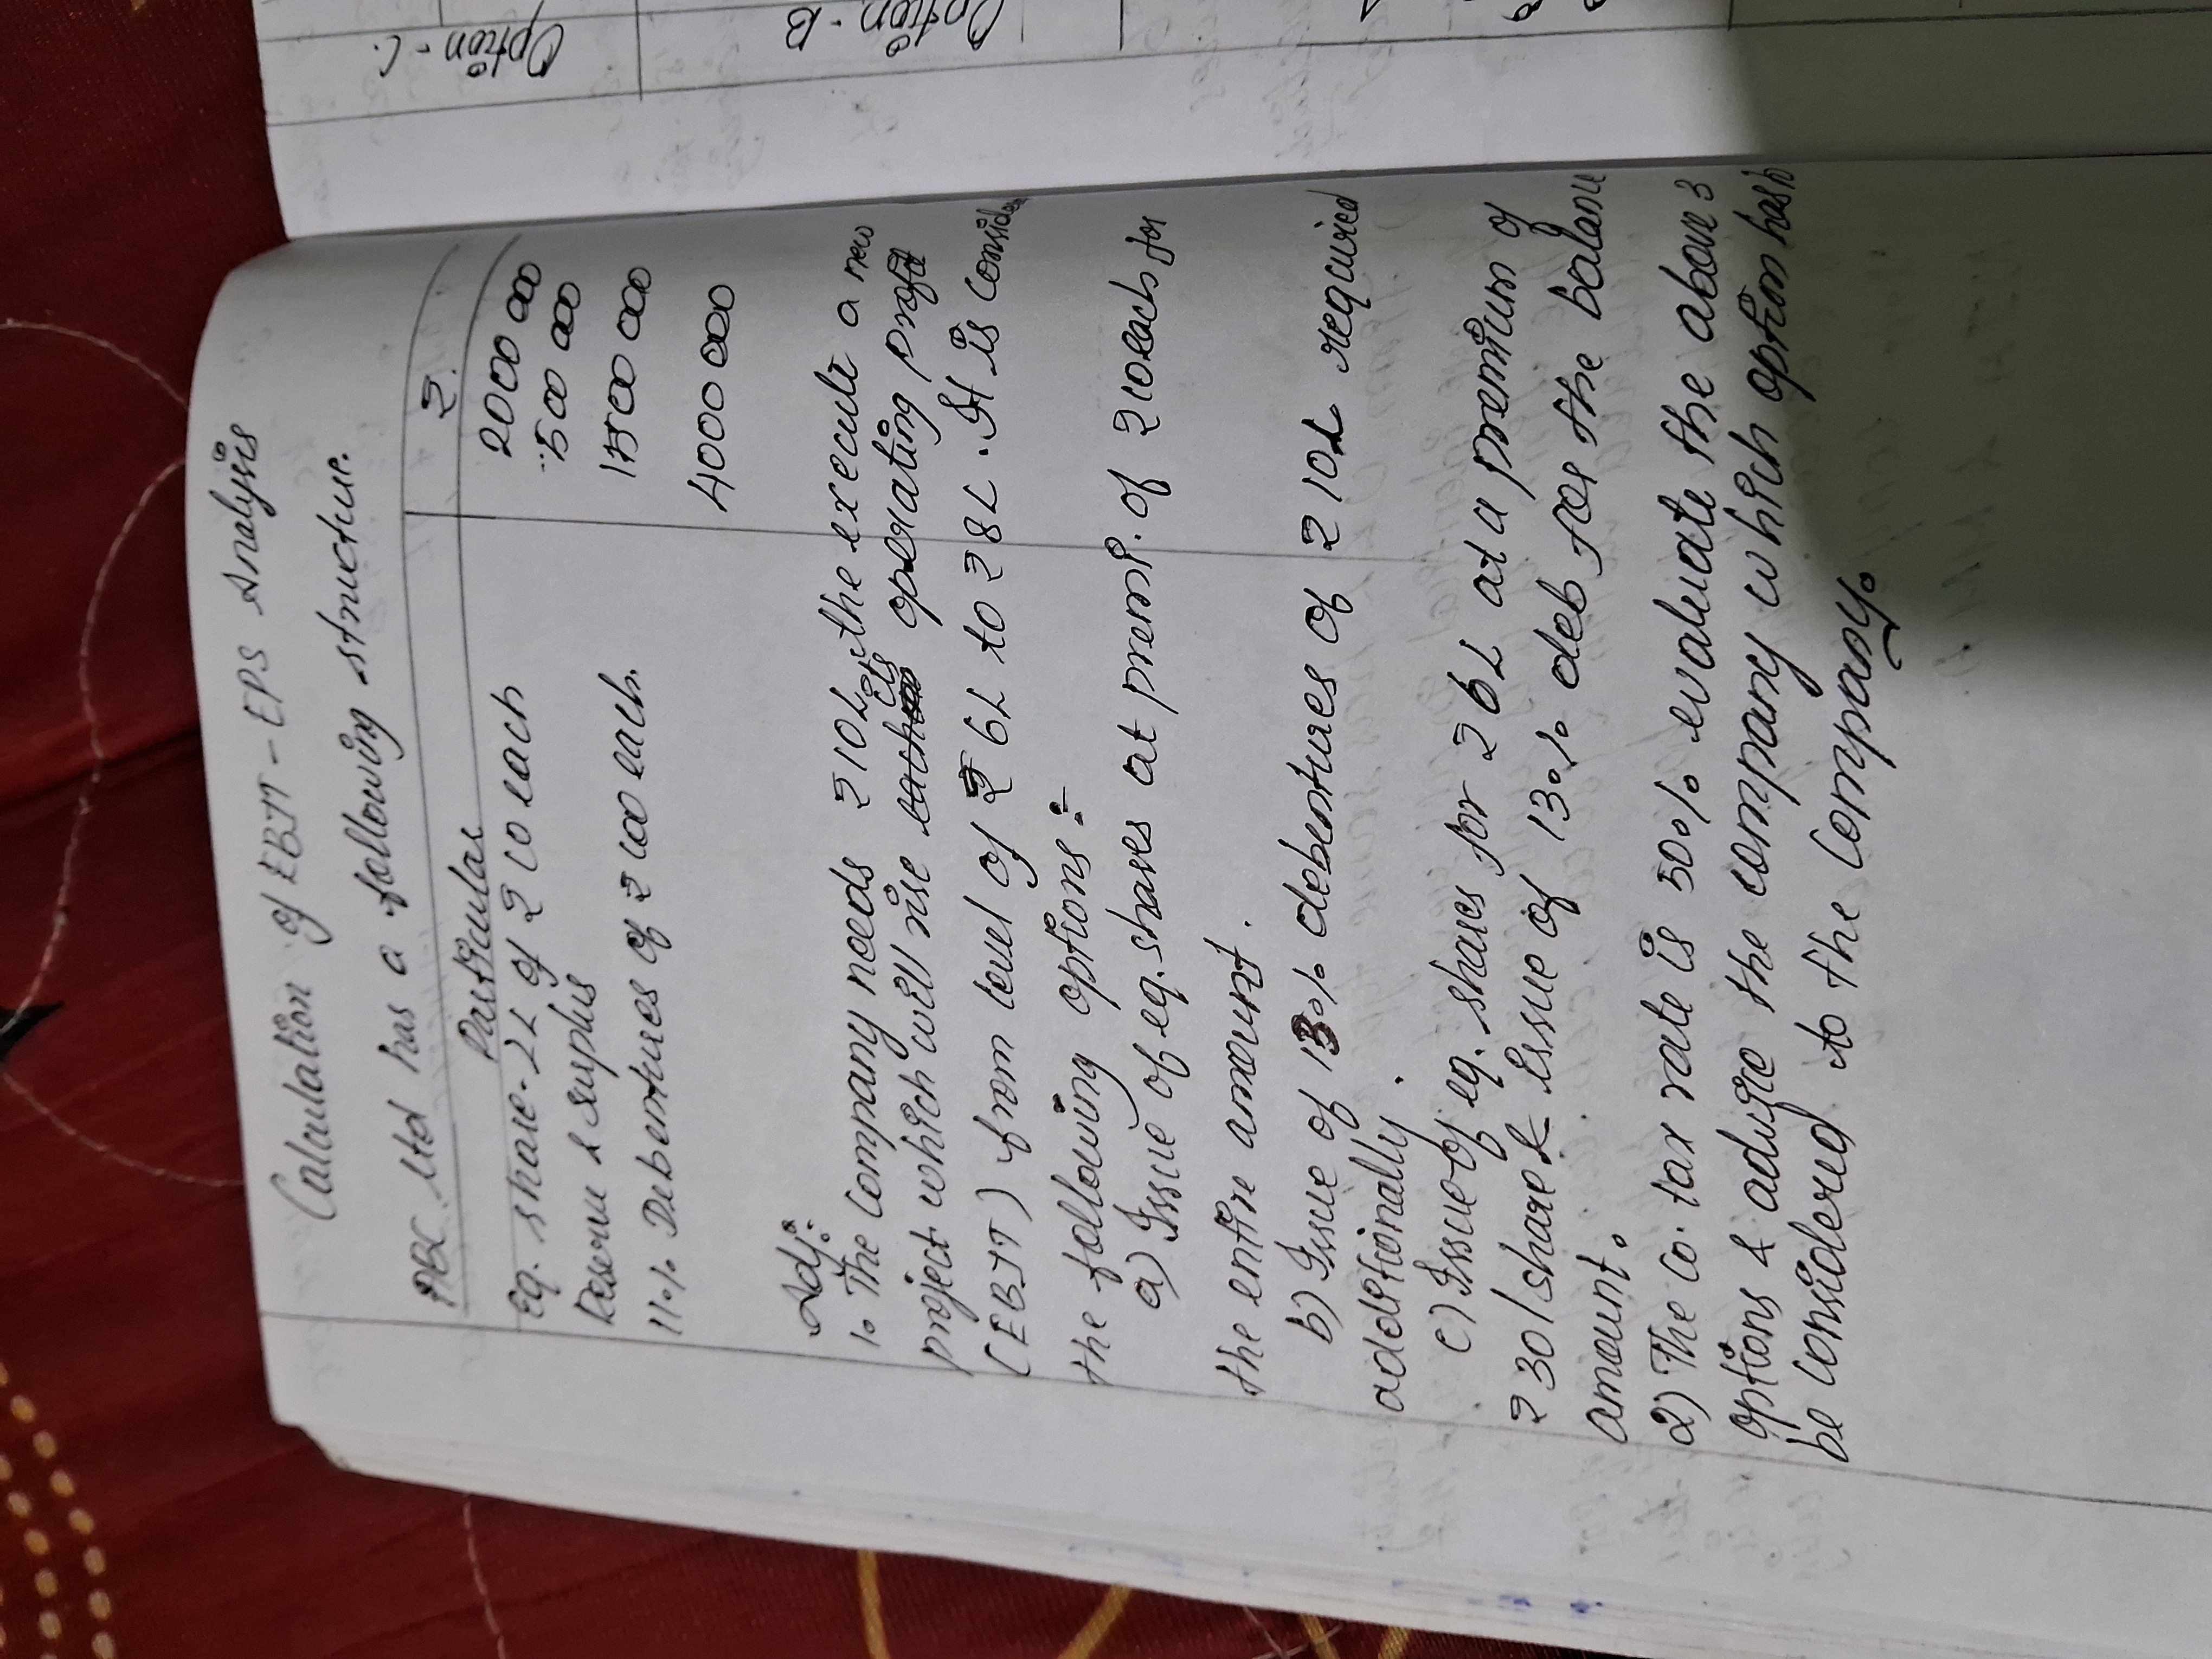 Calculation of EBIT - EPS Analysis
ABC Ltd has a following structure.
Particular ₹.
Eq. share - 2L of ₹ 10 each 2000 000
Reserve & Surplus 500 000
11% Debentures of ₹ 100 each. 1500 000
4000 000
Adj:
1. The Company needs ₹10L, the execute a new
project which will rise its operating profit
(EBIT) from level of ₹ 6L to ₹ 8L. It is consider
the following options :-
a) Issue of eq. shares at premi. of ₹10 each for
the entire amount.
b) Issue of 13% debentures of ₹ 10L required
additionally.
c) Issue of eq. shares for ₹ 6L at a premium of
₹ 30/share & issue of 13% deb for the balance
amount.
2) The co. tax rate is 50% evaluate the above 3
options & advice the company which option has to
be considered to the Company.
Option - C.
Option - B